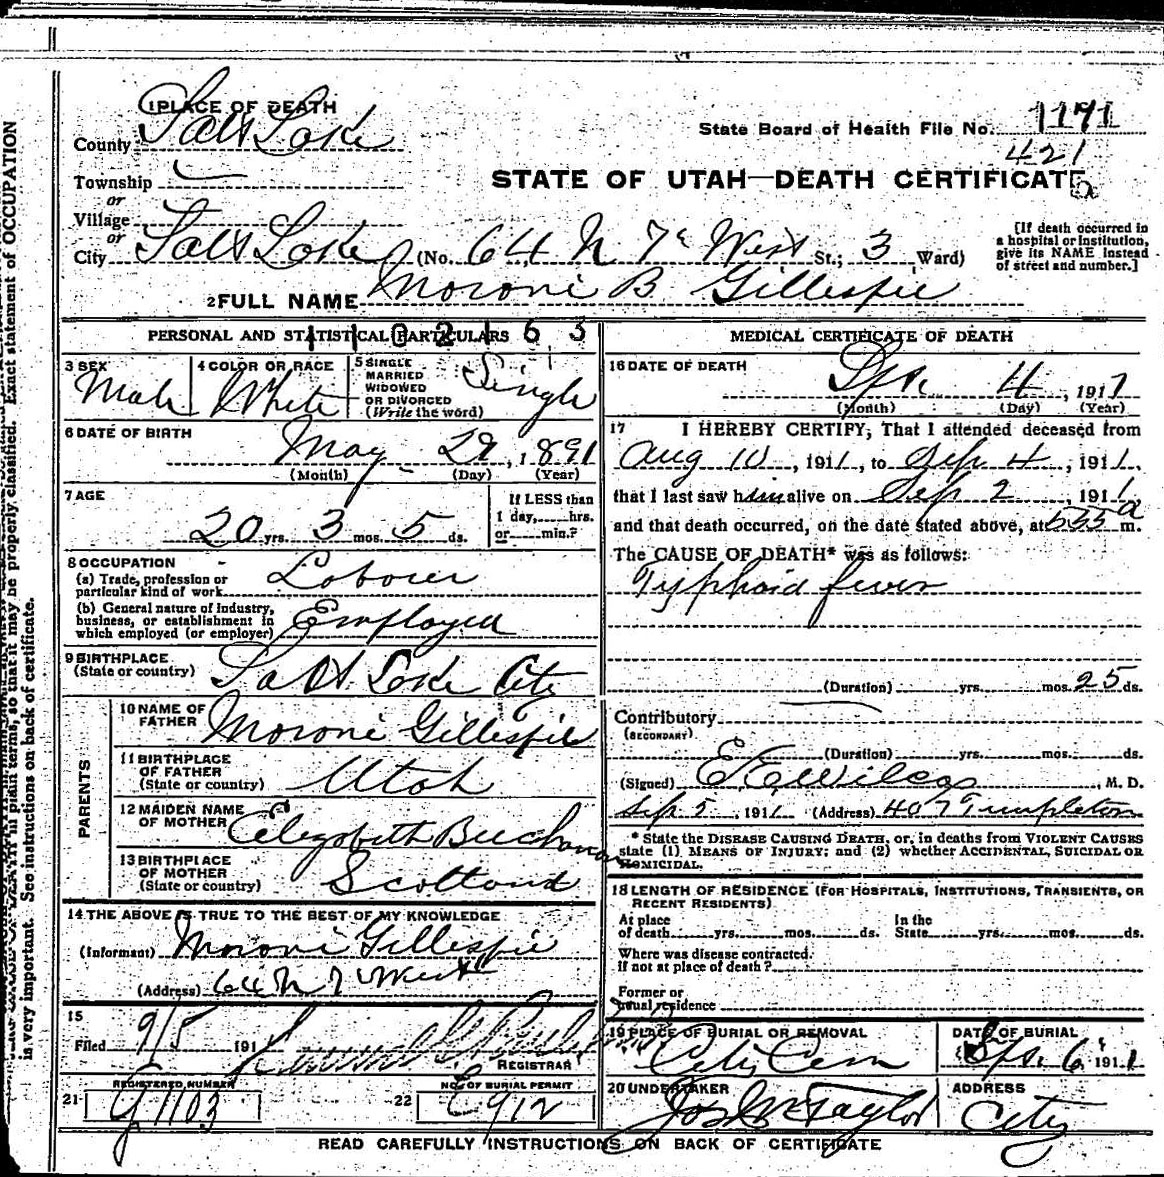 1 PLACE OF DEATH
County Salt Lake
State Board of Health File No. 1171
421
Township
or
STATE OF UTAH—DEATH CERTIFICATE
Village
or
City Salt Lake (No. 64 N 7th West St.; 3 Ward)
[If death occurred in a hospital or institution, give its NAME instead of street and number.]
2 FULL NAME Moroni B Gillespie
PERSONAL AND STATISTICAL PARTICULARS
1102163
3 SEX Male
4 COLOR OR RACE White
5 SINGLE MARRIED WIDOWED OR DIVORCED (Write the word) Single
6 DATE OF BIRTH May 29, 1891
(Month) (Day) (Year)
7 AGE 20 yrs. 3 mos. 5 ds.
If LESS than 1 day,.....hrs. or.....min.?
8 OCCUPATION
(a) Trade, profession or particular kind of work Laborer
(b) General nature of industry, business, or establishment in which employed (or employer) Employed
9 BIRTHPLACE (State or country) Salt Lake City
PARENTS
10 NAME OF FATHER Moroni Gillespie
11 BIRTHPLACE OF FATHER (State or country) Utah
12 MAIDEN NAME OF MOTHER Elizabeth Buchanan
13 BIRTHPLACE OF MOTHER (State or country) Scotland
14 THE ABOVE IS TRUE TO THE BEST OF MY KNOWLEDGE
(Informant) Moroni Gillespie
(Address) 64 N 7 West
15
Filed 9/5 191
REGISTRAR
21 REGISTERED NUMBER 1103
22 NO. OF BURIAL PERMIT E912
MEDICAL CERTIFICATE OF DEATH
16 DATE OF DEATH Sep. 4, 1911
(Month) (Day) (Year)
17 I HEREBY CERTIFY, That I attended deceased from
Aug 10, 1911, to Sep 4, 1911,
that I last saw him alive on Sep 2, 1911,
and that death occurred, on the date stated above, at 535 a m.
The CAUSE OF DEATH* was as follows:
Typhoid fever
(Duration) yrs. mos. 25 ds.
Contributory
(SECONDARY)
(Duration) yrs. mos. ds.
(Signed) E E Wilcox, M. D.
Sep 5, 1911 (Address) 407 Templeton
* State the DISEASE CAUSING DEATH, or, in deaths from VIOLENT CAUSES state (1) MEANS OF INJURY; and (2) whether ACCIDENTAL, SUICIDAL OR HOMICIDAL.
18 LENGTH OF RESIDENCE (FOR HOSPITALS, INSTITUTIONS, TRANSIENTS, OR RECENT RESIDENTS)
At place of death yrs. mos. ds. In the State yrs. mos. ds.
Where was disease contracted. If not at place of death?
Former or usual residence
19 PLACE OF BURIAL OR REMOVAL City Cem
DATE OF BURIAL Sep. 6, 1911
20 UNDERTAKER Jos Wm Taylor
ADDRESS City
READ CAREFULLY INSTRUCTIONS ON BACK OF CERTIFICATE
in plain terms, so that it may be properly classified. Exact statement of OCCUPATION
is very important. See instructions on back of certificate.